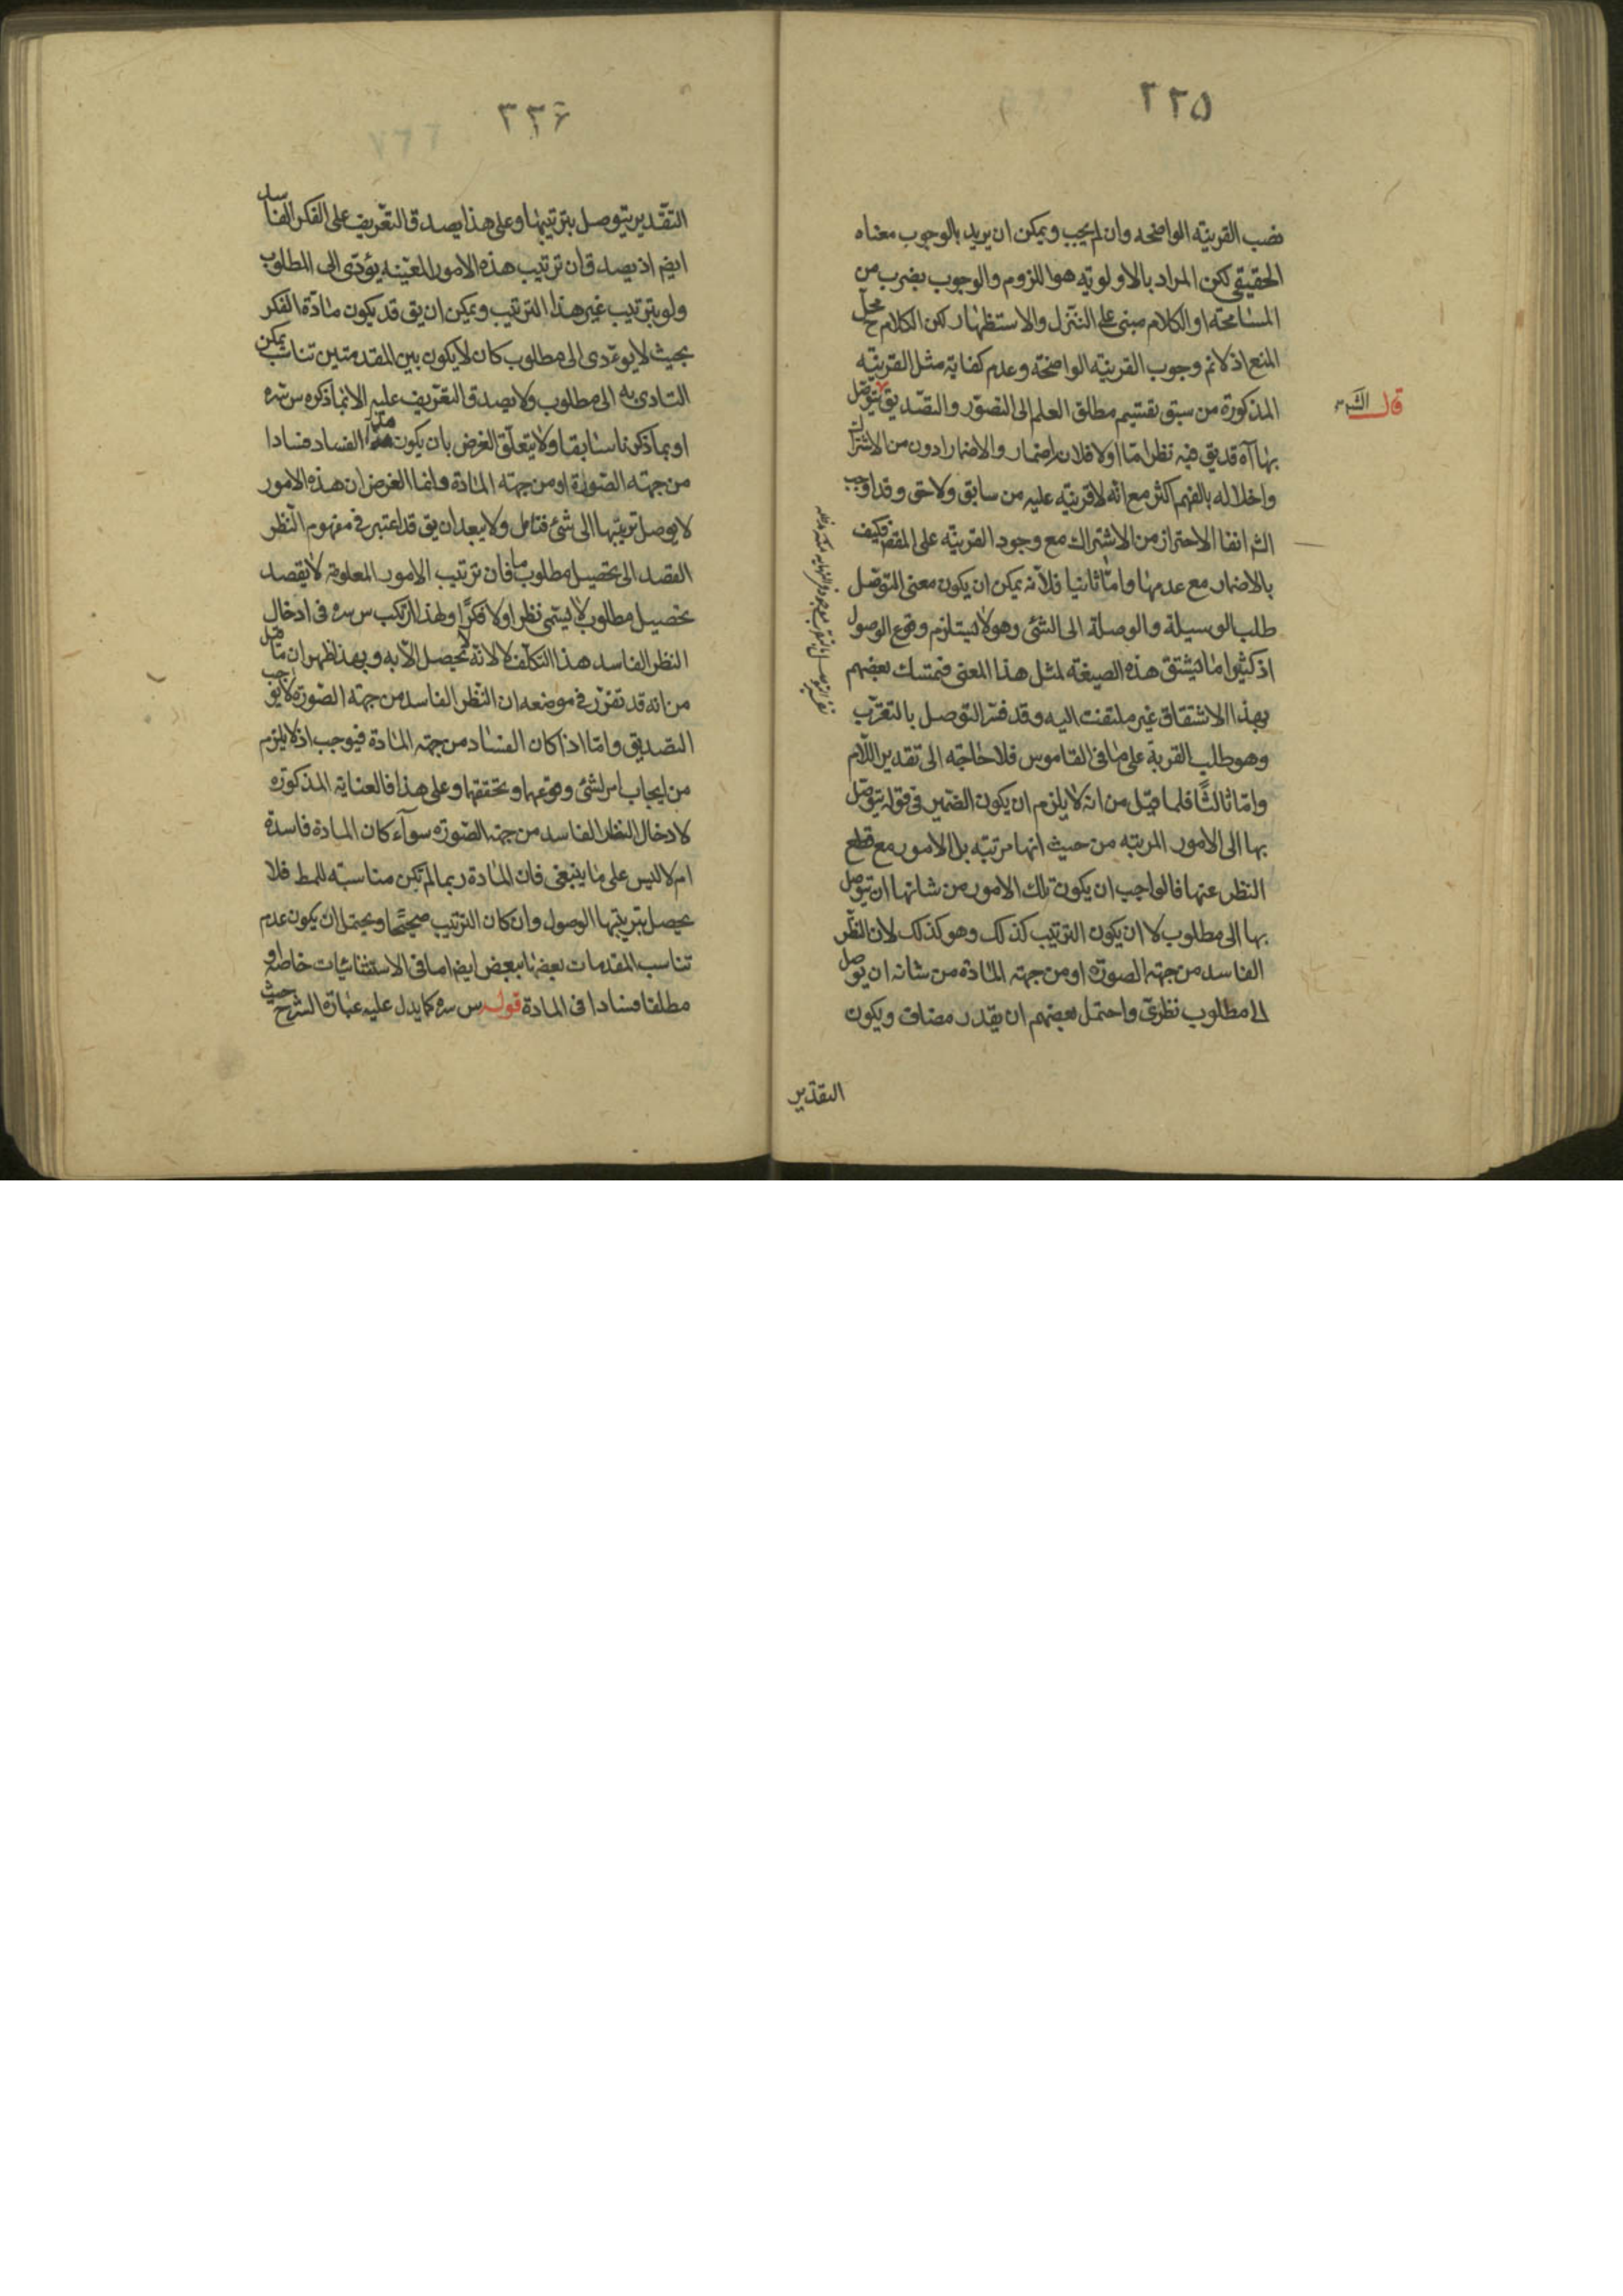 ٢٢٥
نصب القرينة الواضحه وان لم يجب ويمكن ان يريد بالوجوب معناه
الحقيقى لكن المراد بالاولوية هو اللزوم والوجوب بضرب من
المسامحة او الكلام مبنى على التنزل والاستظهار لكن الكلام محل
المنع اذ لانم وجوب القرينة الواضحة وعدم كفاية مثل القرينة
المذكورة من سبق تقسيم مطلق العلم الى التصور والتصديق يتوصل
قال الش
بها آه قد يق فيه نظر اما اولا فلان الاضمار والاضمار ادون من الاشتراك
واخلاله بالفهم اكثر مع انه لا قرينة عليه من سابق ولاحق وقد اوجب
الش انفا الاحتراز من الاشتراك مع وجود القرينة على المقص فكيف
بالاضمار مع عدمها واما ثانيا فلانه يمكن ان يكون معنى التوصل
طلب الوسيلة والوصلة الى الشئ وهو لا يستلزم وقوع الوصول
اذ كثيرا ما يشتق هذه الصيغة لمثل هذا المعنى فتمسك بعضهم
بهذا الاشتقاق غير ملتفت اليه وقد فسر التوصل بالتقرب
وهو طلب القربة على ما فى القاموس فلا حاجة الى تقدير اللام
واما ثالثا فلما قيل من انه لا يلزم ان يكون الضمير فى قوله يتوصل
بها الى الامور المرتبه من حيث انها مرتبة بل الامور مع قطع
النظر عنها فالواجب ان يكون تلك الامور من شانها ان يتوصل
بها الى مطلوب لا ان يكون الترتيب كذلك وهو كذلك لان النظر
الفاسد من جهة الصورة او من جهة المادة من شانه ان يوصل
الى مطلوب نظرى واحتمل بعضهم ان يقدر مضاف ويكون
التقدير
٢٢٦
التقدير يتوصل بترتيبها وعلى هذا يصدق التعريف على الفكر الفاسد
ايضم اذ يصدق ان ترتيب هذه الامور المعينه يؤدى الى المطلوب
ولو بترتيب غير هذا الترتيب ويمكن ان يق قد يكون مادة الفكر
بحيث لا يؤدى الى مطلوب كان لا يكون بين المقدمتين تناسب يمكن
التادى به الى مطلوب ولا يصدق التعريف عليه الا بما ذكره س سره
او بما ذكرنا سابقا ولا يتعلق الغرض بان يكون هذا الفساد فسادا
من جهة الصورة او من جهة المادة وانما الغرض ان هذه الامور
لا يوصل ترتيبها الى شئ فتامل ولا يبعد ان يق قد اعتبر فى مفهوم النظر
القصد الى تحصيل مطلوب ما فان ترتيب الامور المعلومة لا بقصد
تحصيل مطلوب لا يسمى نظرا ولا فكرا ولهذا ارتكب س سره فى ادخال
النظر الفاسد هذا التكلف لا لانه لا يحصل الا به وبهذا ظهر ان ما قيل
من انه قد تقرر فى موضعه ان النظر الفاسد من جهة الصورة لا يوجب
التصديق واما اذا كان الفساد من جهة المادة فيوجب اذ لا يلزم
من ايجاب امر لشئ وقوعها وتحققها وعلى هذا فالعناية المذكورة
لادخال النظر الفاسد من جهة الصورة سواء كان المادة فاسدة
ام لا ليس على ما ينبغى فان المادة ربما لم تكن مناسبة للمط فلا
يحصل بترتيبها الوصول وان كان الترتيب صحيحا ويحتمل ان يكون عدم
تناسب المقدمات بعضها ببعض ايضا اما فى الاستثنائيات خاصة او
مطلقا فسادا فى المادة قوله س سره كما يدل عليه عبارة الشرح حيث